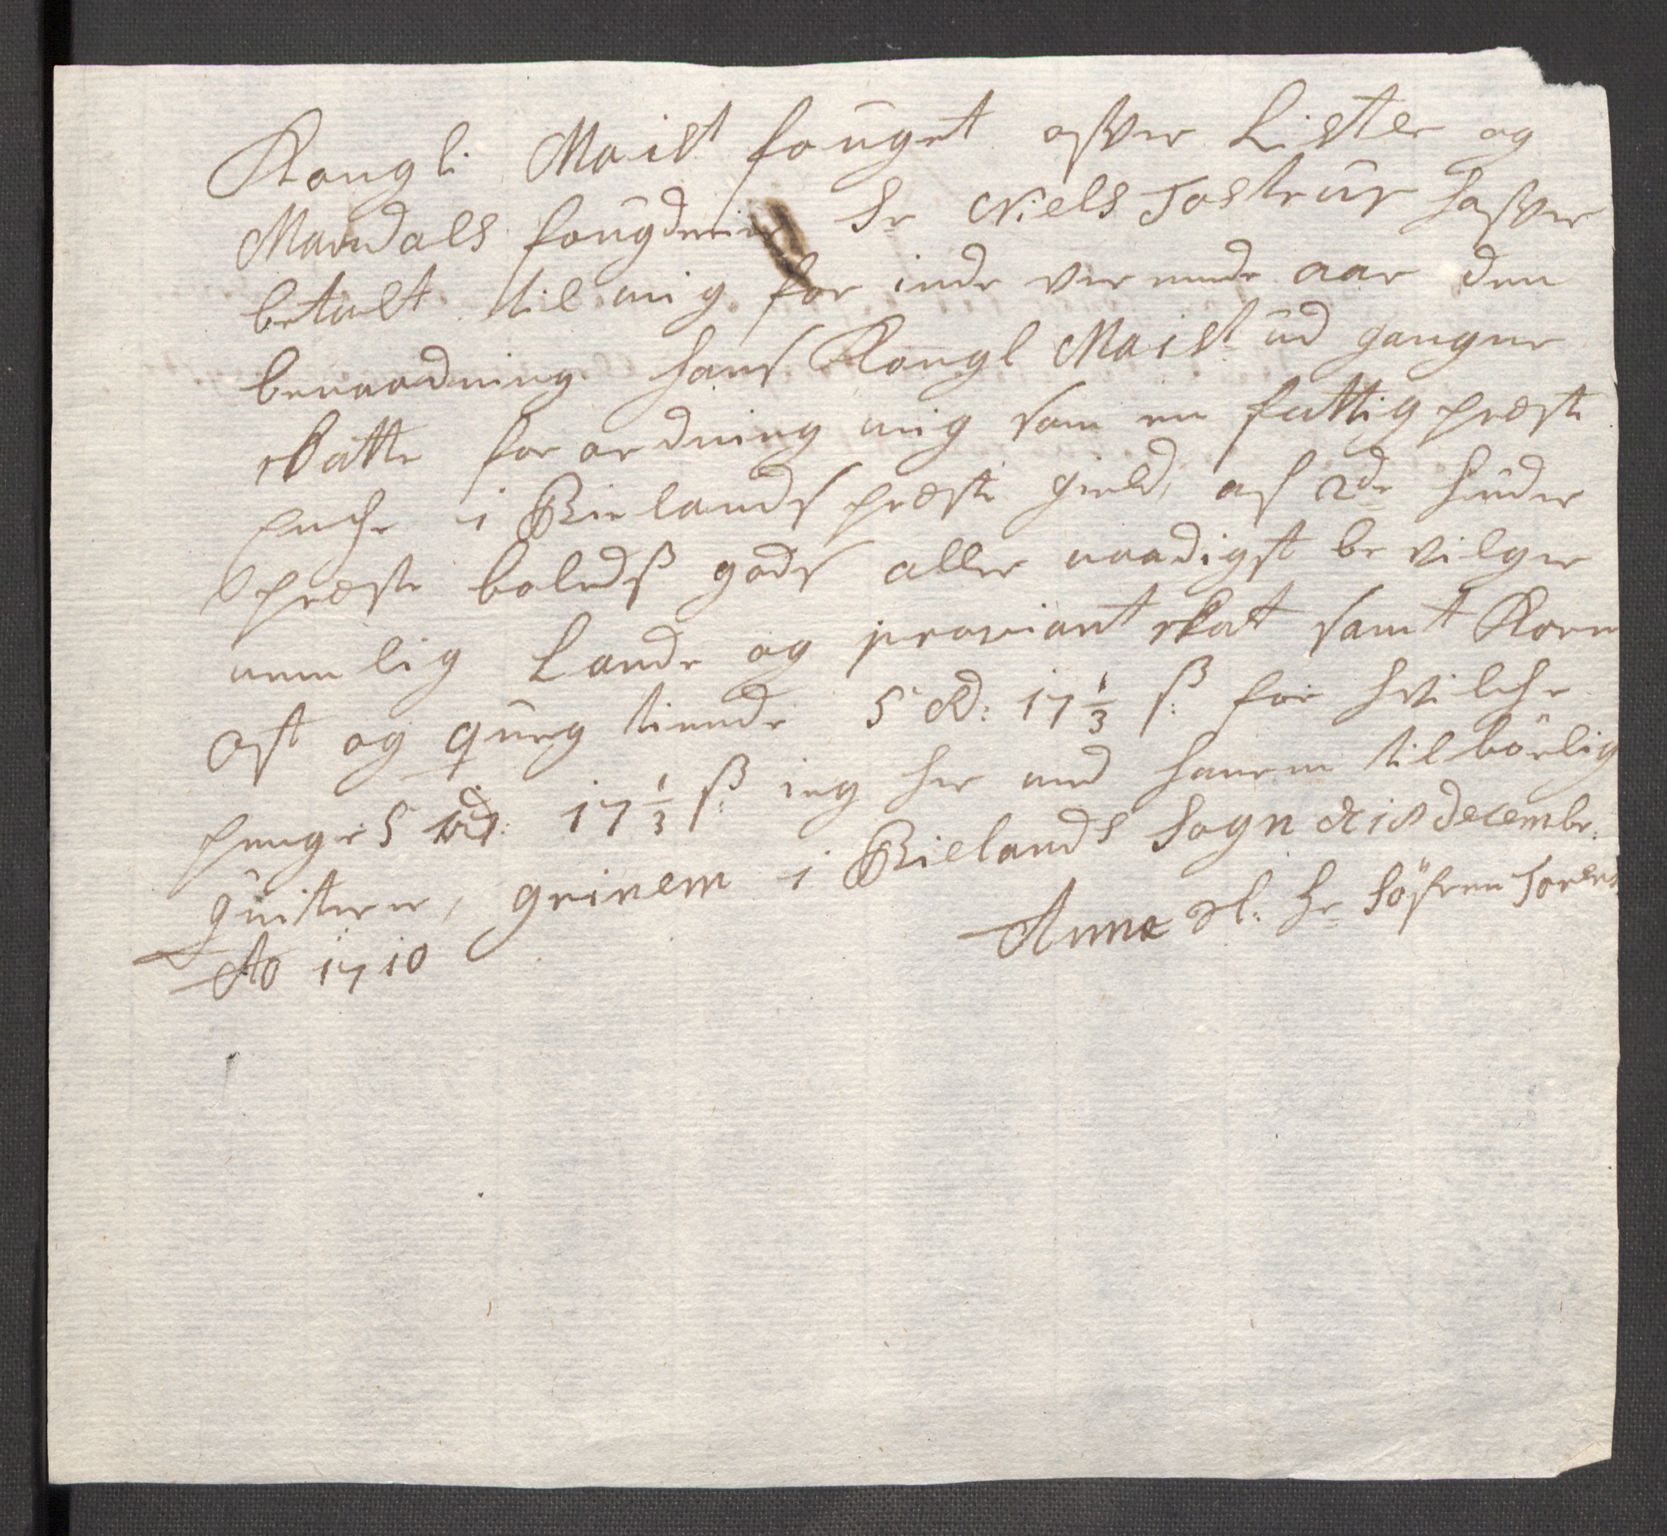 Kongli Maist fouget ofver Lister og
Mandals fougderier Sr Niels Tostrup hafver
betalt til mig for inde verende aar den
benaadning hans Kongl Maist ud gangne
skatte forordning mig som en fattig præste
enche i Bielands præste gield, af 2de huder
præste boleds gods aller naadigst be vilger
nemlig Lande og proviant skat samt Korn
ost og qveg tiende 5 Rd: 17 1/3 ß: for hvilche
penge 5 Rd: 17 1/3 ß: ieg her med hannem tilbörlig
quiterer, greinem i Bielands Sogn d 18 decembr:
Ao 1710
Anna Sl: Hr Söfren